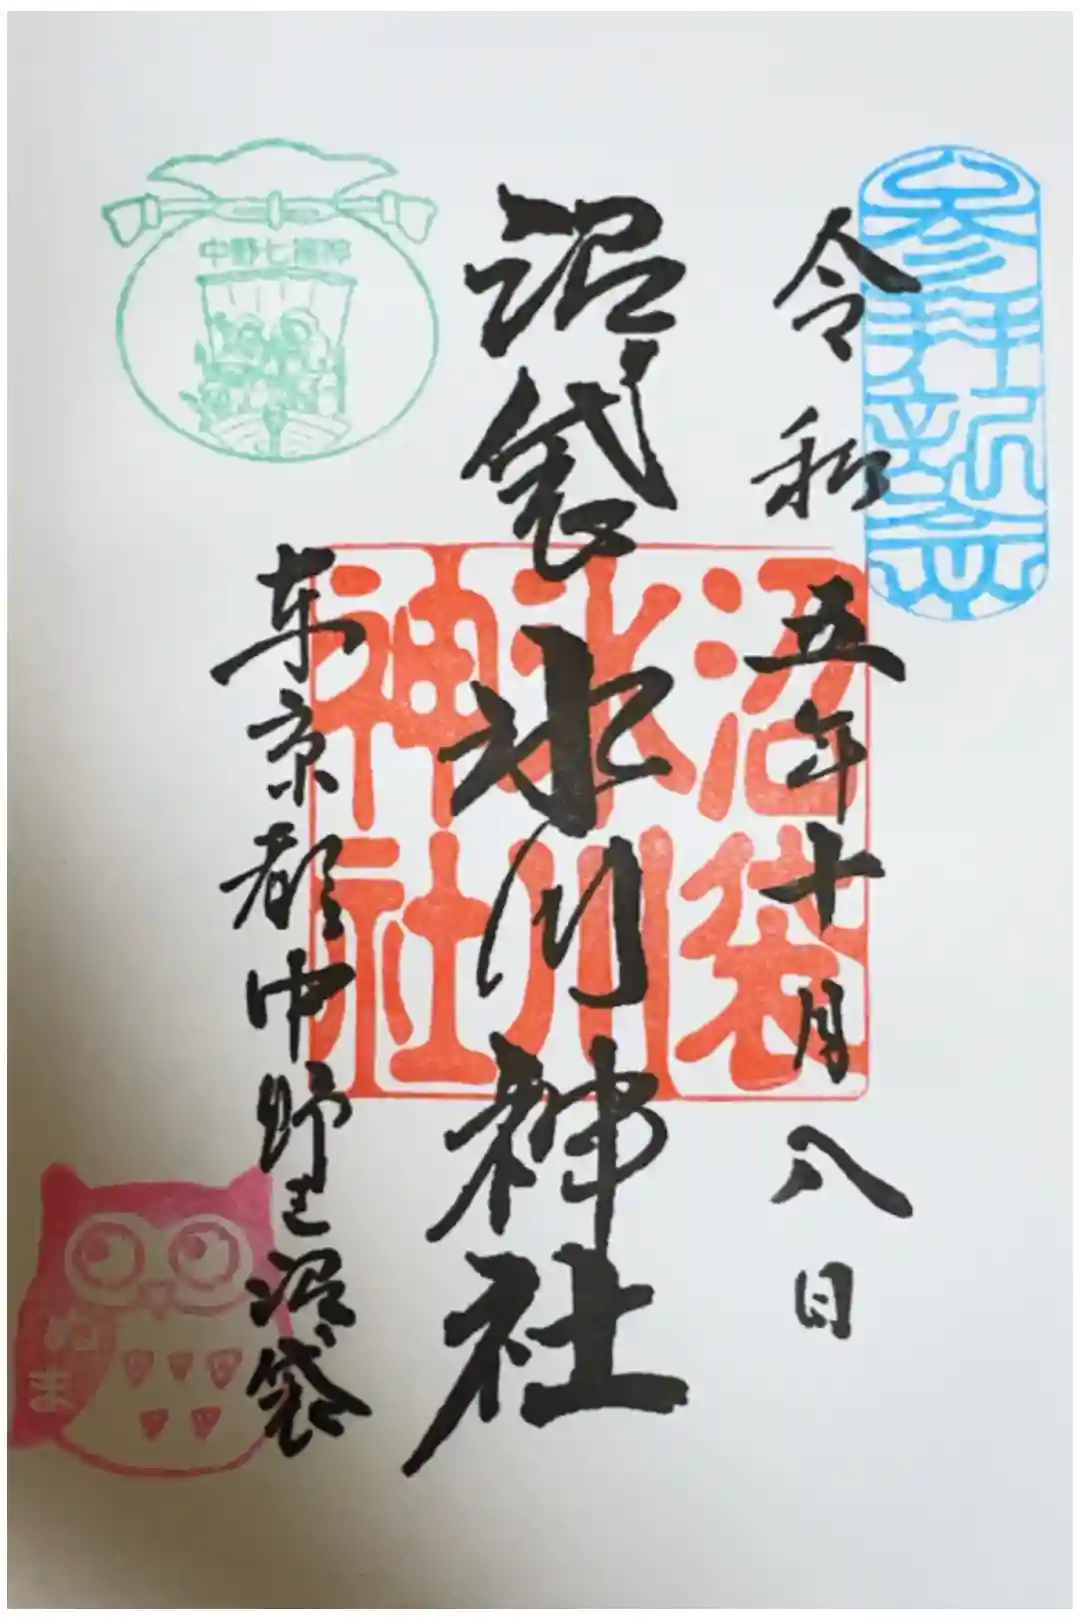 参拝祈念
令和五年十月八日
沼袋氷川神社
沼袋
氷川
神社
東京都中野区沼袋
中野七福神
ぬま